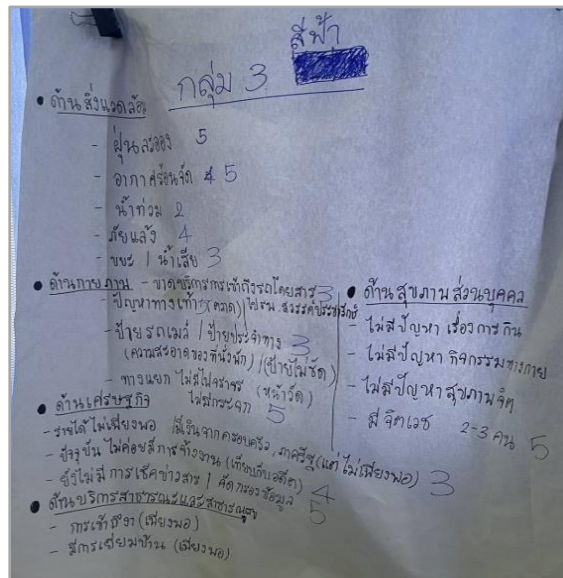 สีฟ้า
กลุ่ม 3
• ด้านสิ่งแวดล้อม
- ฝุ่นละออง 5
- อากาศร้อนจัด 5
- น้ำท่วม 2
- ภัยแล้ง 4
- ขยะ / น้ำเสีย 3
• ด้านกายภาพ - ขาดบริการการเข้าถึงรถโดยสาร 3
- ปัญหาทางเท้า (ตลาด) ไปรพ. สวรรค์ประชารักษ์
- ป้ายรถเมล์ / ป้ายประจำทาง 3
(ความสะอาดของที่นั่งพัก) / (ป้ายไม่ชัด)
- ทางแยก ไม่มีไฟจราจร (หน้าวัด)
ไม่มีกระจก 5
• ด้านเศรษฐกิจ
- รายได้ไม่เพียงพอ / มีเงินจากครอบครัว, ภาครัฐ (แต่ไม่เพียงพอ) 3
- ปัจจุบัน ไม่ค่อยมีการจ้างงาน (เทียบกับอดีต)
- ยังไม่มีการเช็คข่าวสาร / คัดกรองข้อมูล 4
• ด้านบริการสาธารณะและสาธารณสุข 5
- การเข้าถึง (เพียงพอ)
- มีการเยี่ยมบ้าน (เพียงพอ)
• ด้านสุขภาพส่วนบุคคล
- ไม่มีปัญหา เรื่องการกิน
- ไม่มีปัญหา กิจกรรมทางกาย
- ไม่มีปัญหาสุขภาพจิต
- มีจิตเวช 2-3 คน 5